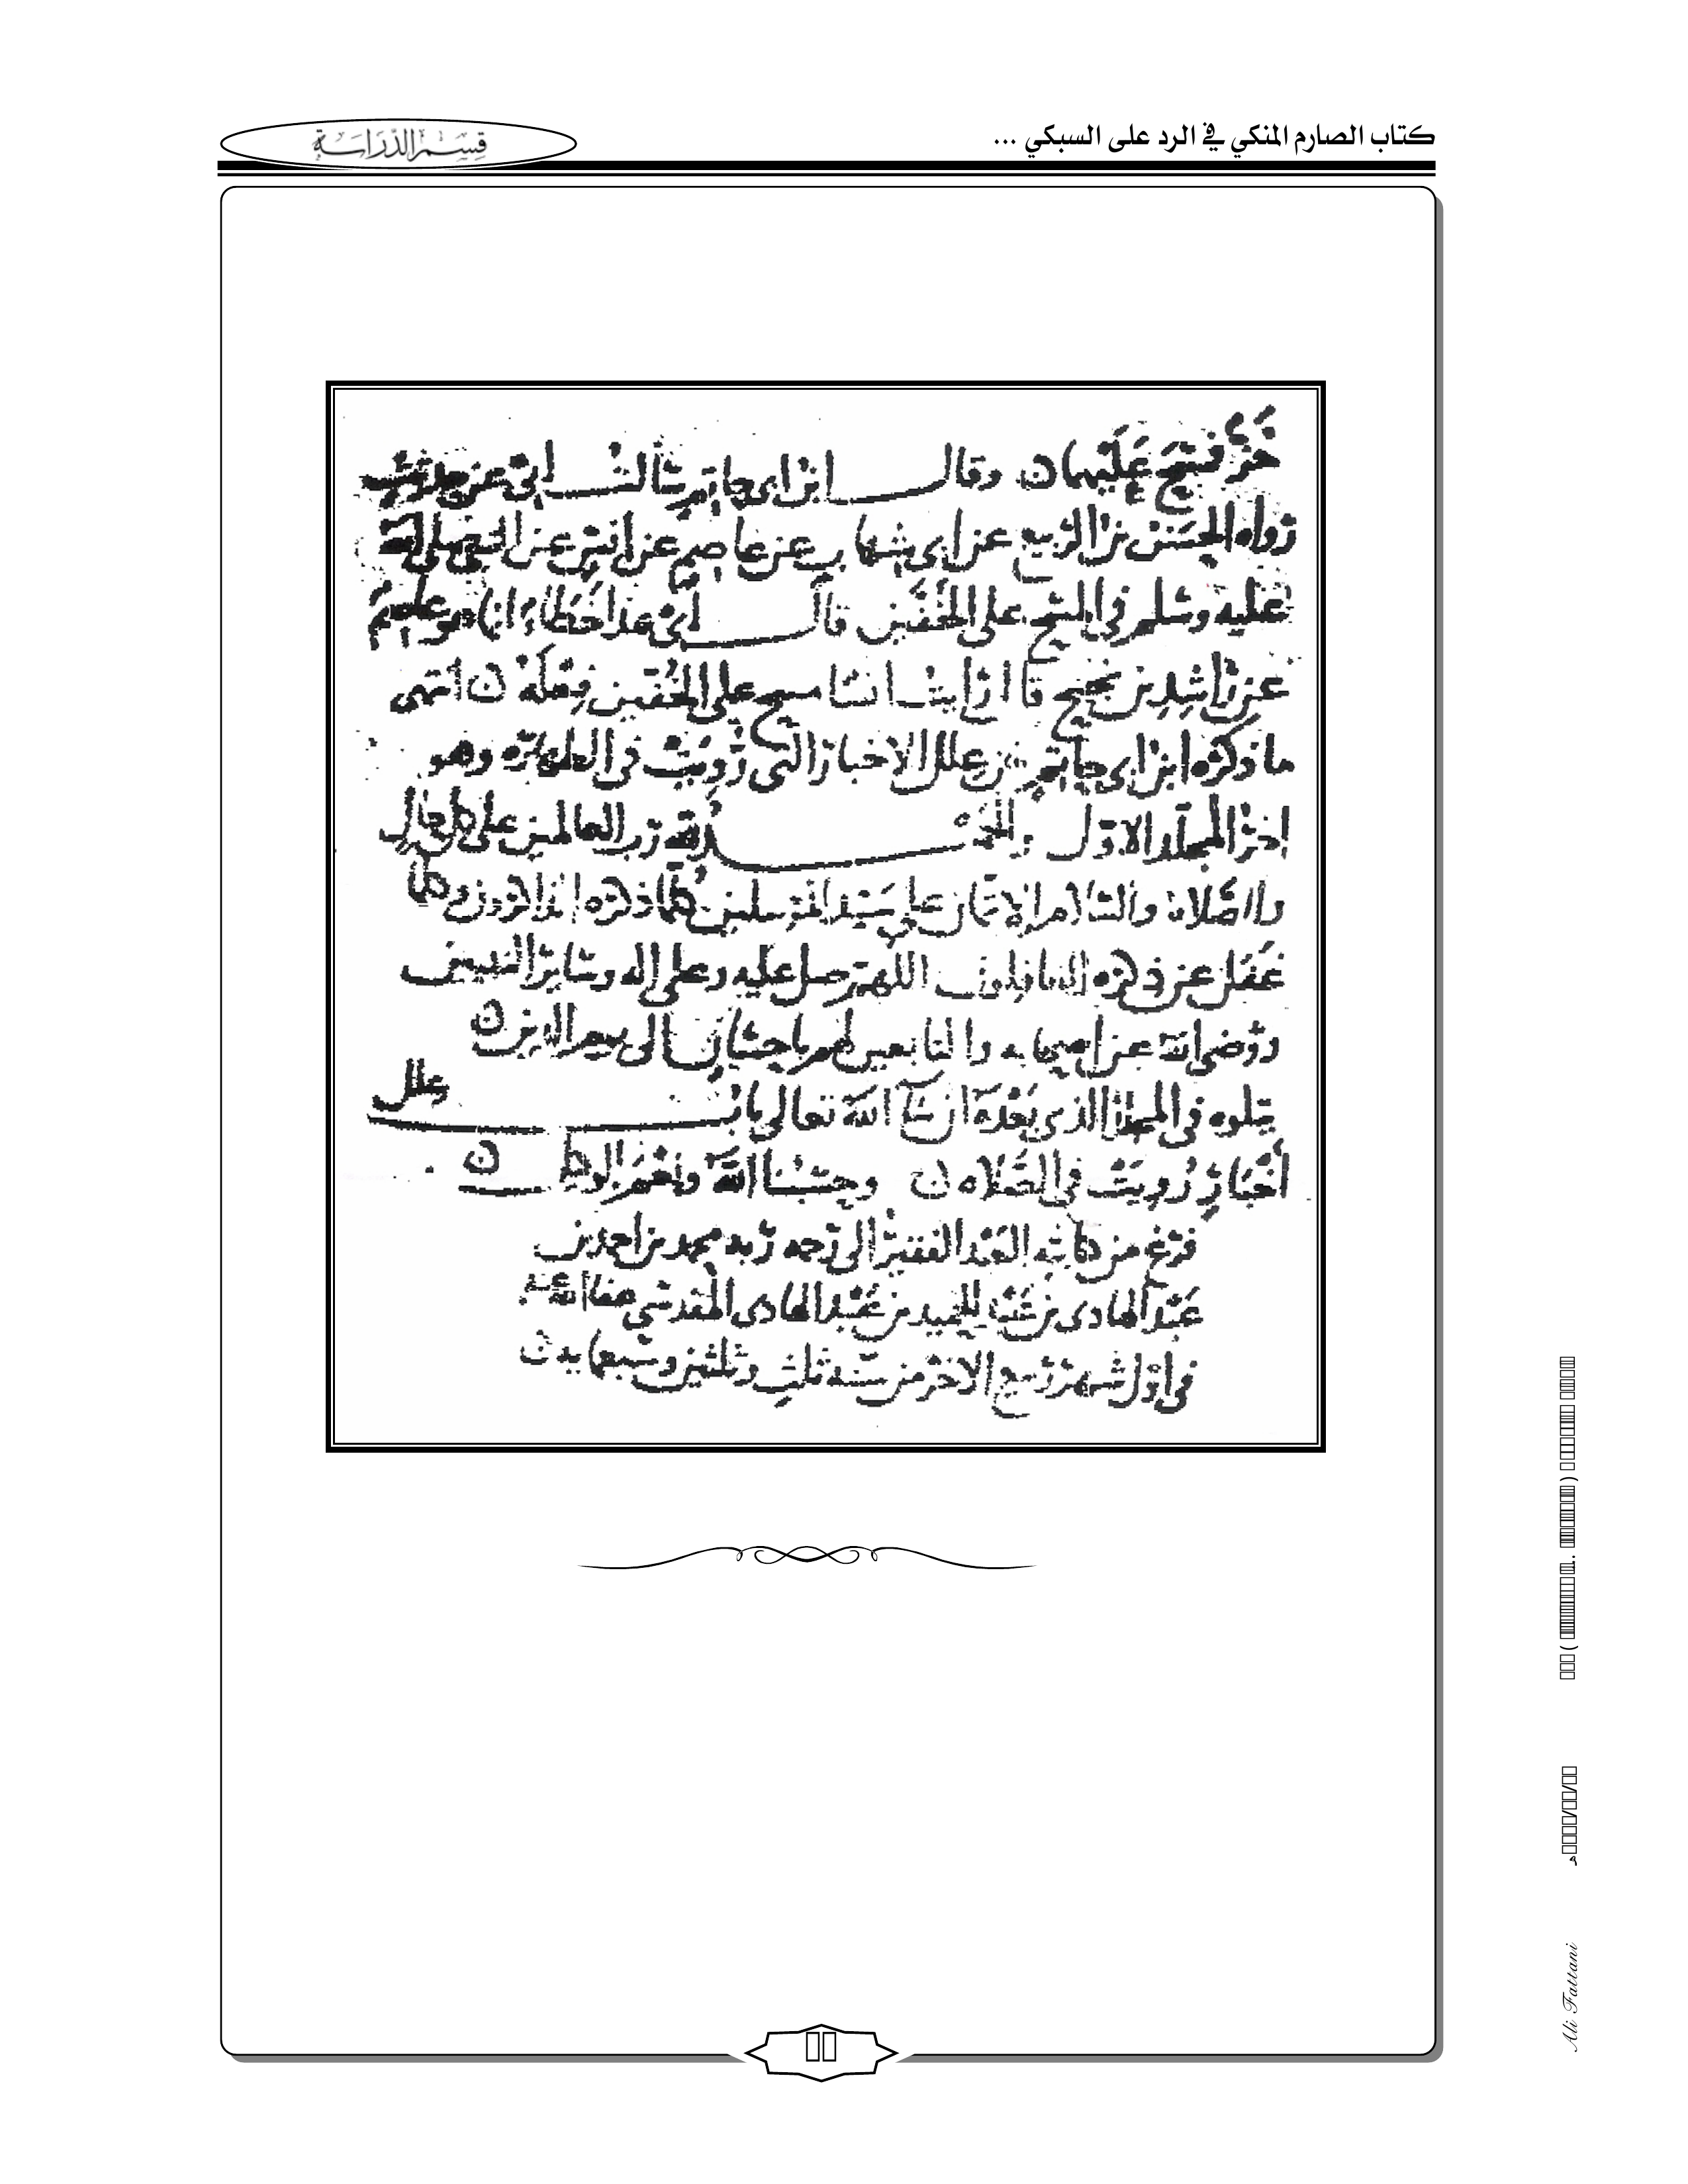 كتاب الصارم المنكي في الرد على السبكي ...
قسم الدراسة
خر فمسح عليهما ن وقال ابن ابي حاتم سالت ابي عن حديث
رواه الحسن بن الربيع عن ابي شهاب عن عاصم عن انس عن النبي صلى الله
عليه وسلم في المسح على الخفين قال ابي هذا خطاء انما هو عاصم
عن راشد بن نجيح قال رايت انسا مسح على الخفين فعله ن انتهى
ما ذكره ابن ابي حاتم من علل الاخبار التي رويت في الطهارة وهو
اخر المجلد الاول والحمد لله رب العالمين على كل حال
والصلاة والسلام الاتمان على سيد المرسلين كلما ذكره الذاكرون وكلما
غفل عن ذكره الغافلون اللهم صل عليه وعلى اله وسائر النبيين
ورضي الله عن اصحابه والتابعين لهم باحسان الى يوم الدين ن
يتلوه في المجلد الذي بعده ان شآ الله تعالى باب علل
أخبار رويت في الصلاه ن وحسبنا الله ونعم الوكيل ن
فرغ من كتابته العبد الفقير الى رحمه ربه محمد بن احمد بن
عبد الهادي بن عبد الحميد بن عبد الهادي المقدسي عفا الله عنه
في اول شهر ربيع الاخر من سنه ثلث وثلثين وسبعمايه ن
Ali Fattani